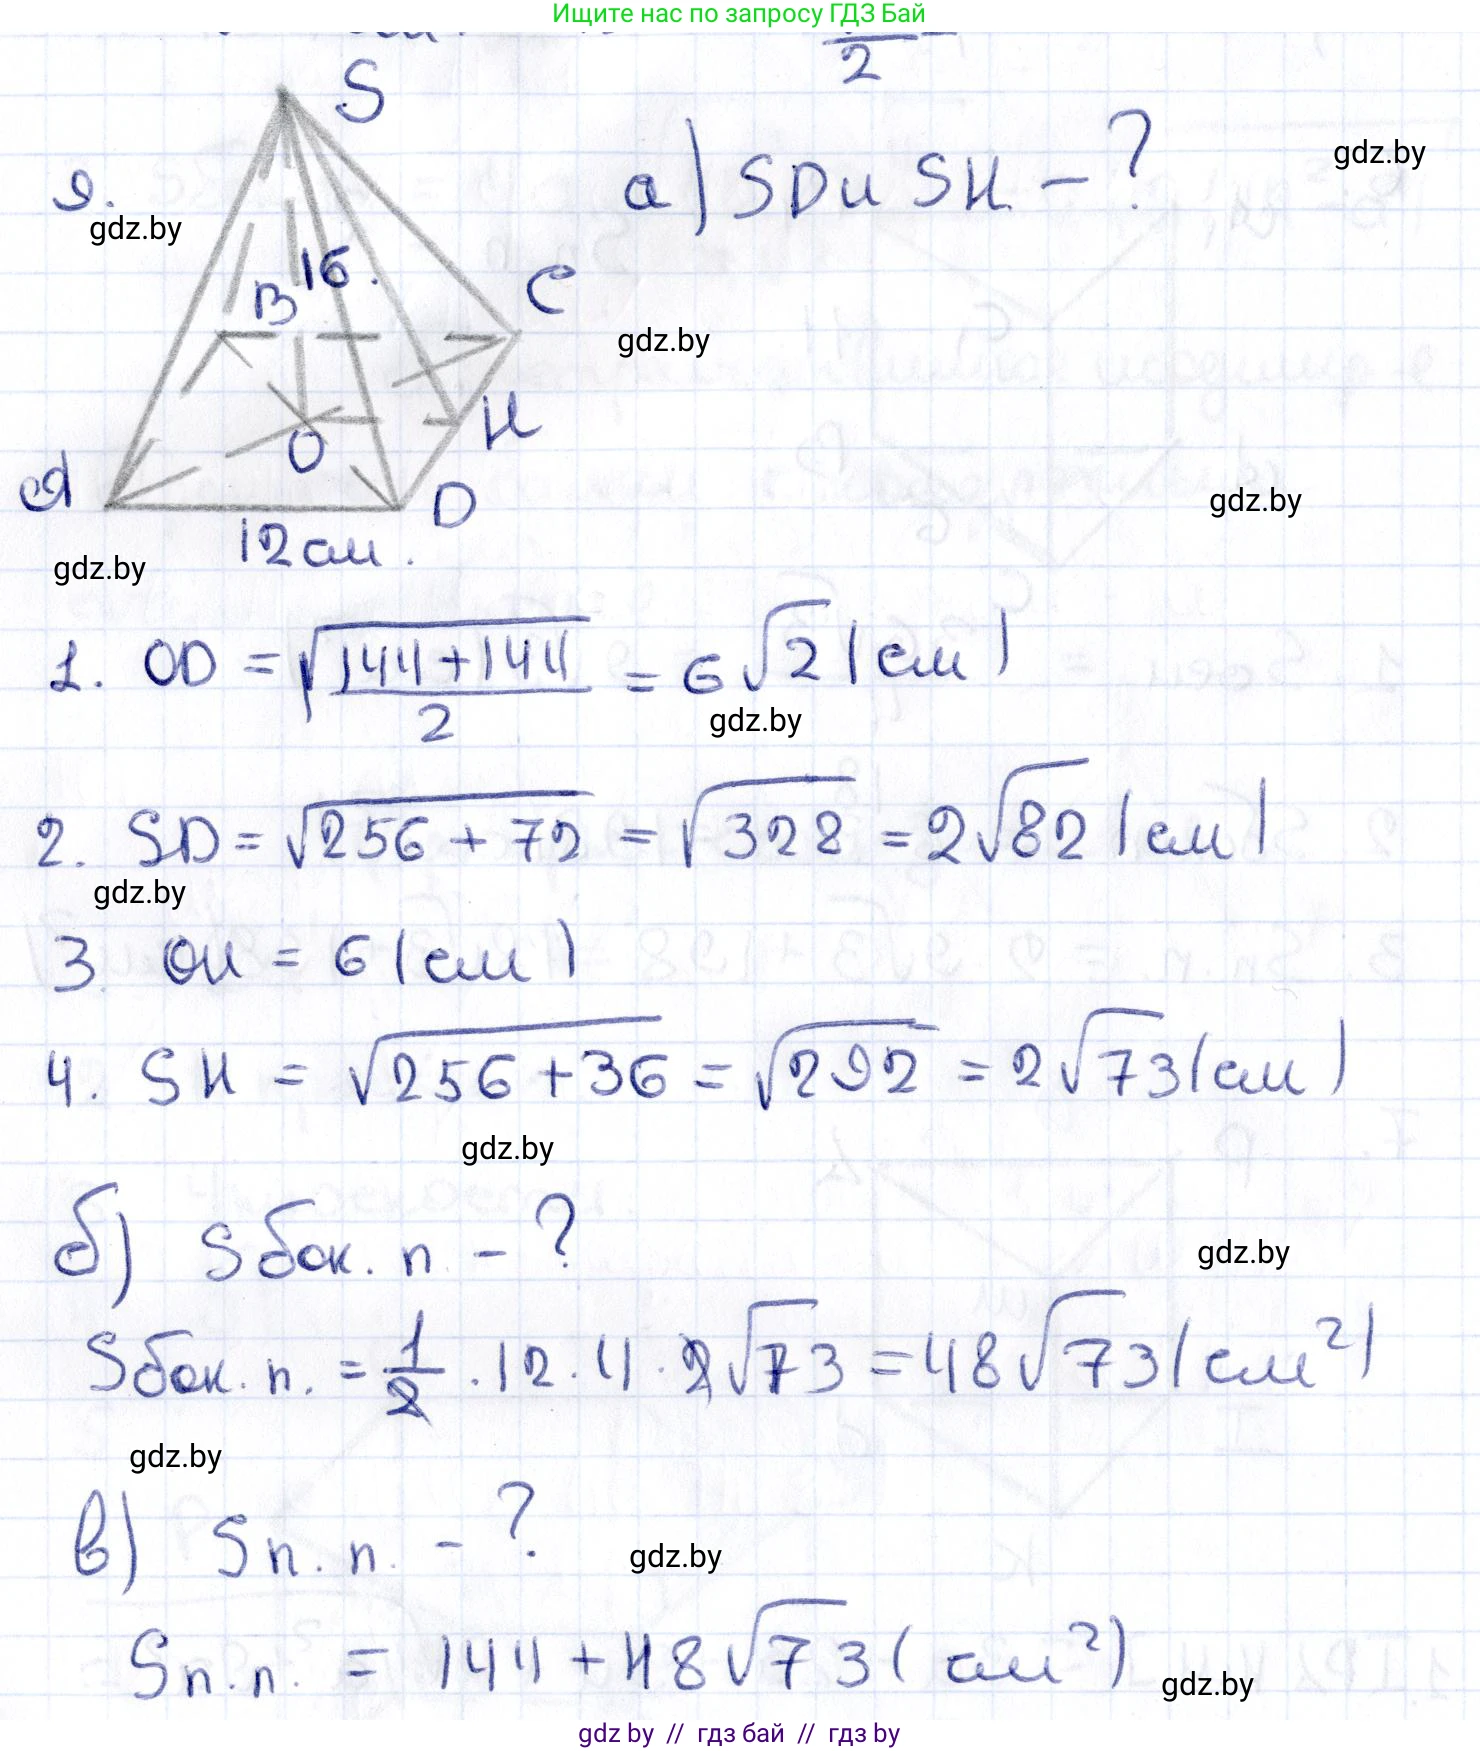 Ищите нас по запросу ГДЗ Бай
2
S
а) SD и SH - ?
gdz.by
9.
gdz.by
16.
B
C
gdz.by
H
O
A
D
gdz.by
12 см.
gdz.by
1. OD = √144+144 / 2 = 6√2 (см)
gdz.by
2. SD = √256 + 72 = √328 = 2√82 (см)
gdz.by
3. OH = 6 (см)
4. SH = √256 + 36 = √292 = 2√73 (см)
gdz.by
б) Sбок. п - ?
gdz.by
Sбок. п. = 1/2 · 12 · 4 · 2√73 = 48√73 (см²)
gdz.by
в) Sп. п. - ?
gdz.by
Sп. п. = 144 + 48√73 (см²)
gdz.by
gdz by // гдз бай // гдз by